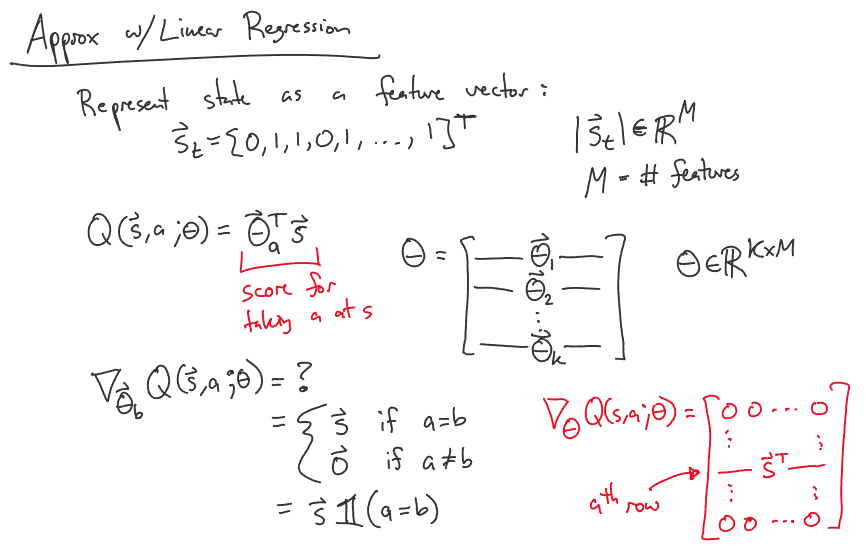 Approx w/Linear Regression
Represent state as a feature vector:
s⃗_t = [0, 1, 1, 0, 1, ..., 1]^T
|s⃗_t| ∈ ℝ^M
M = # features
Q(s⃗, a; θ) = θ⃗_a^T s⃗
score for
taking a at s
Θ = [ — θ⃗_1 —
— θ⃗_2 —
⋮
— θ⃗_k — ]
Θ ∈ ℝ^{K×M}
∇_{θ⃗_b} Q(s⃗, a; θ) = ?
= { s⃗ if a=b
0⃗ if a≠b
= s⃗ 𝟙(a=b)
∇_Θ Q(s, a; θ) = [ 0 0 ... 0
⋮ ⋮
— s⃗^T —
⋮ ⋮
0 0 ... 0 ]
a^th row